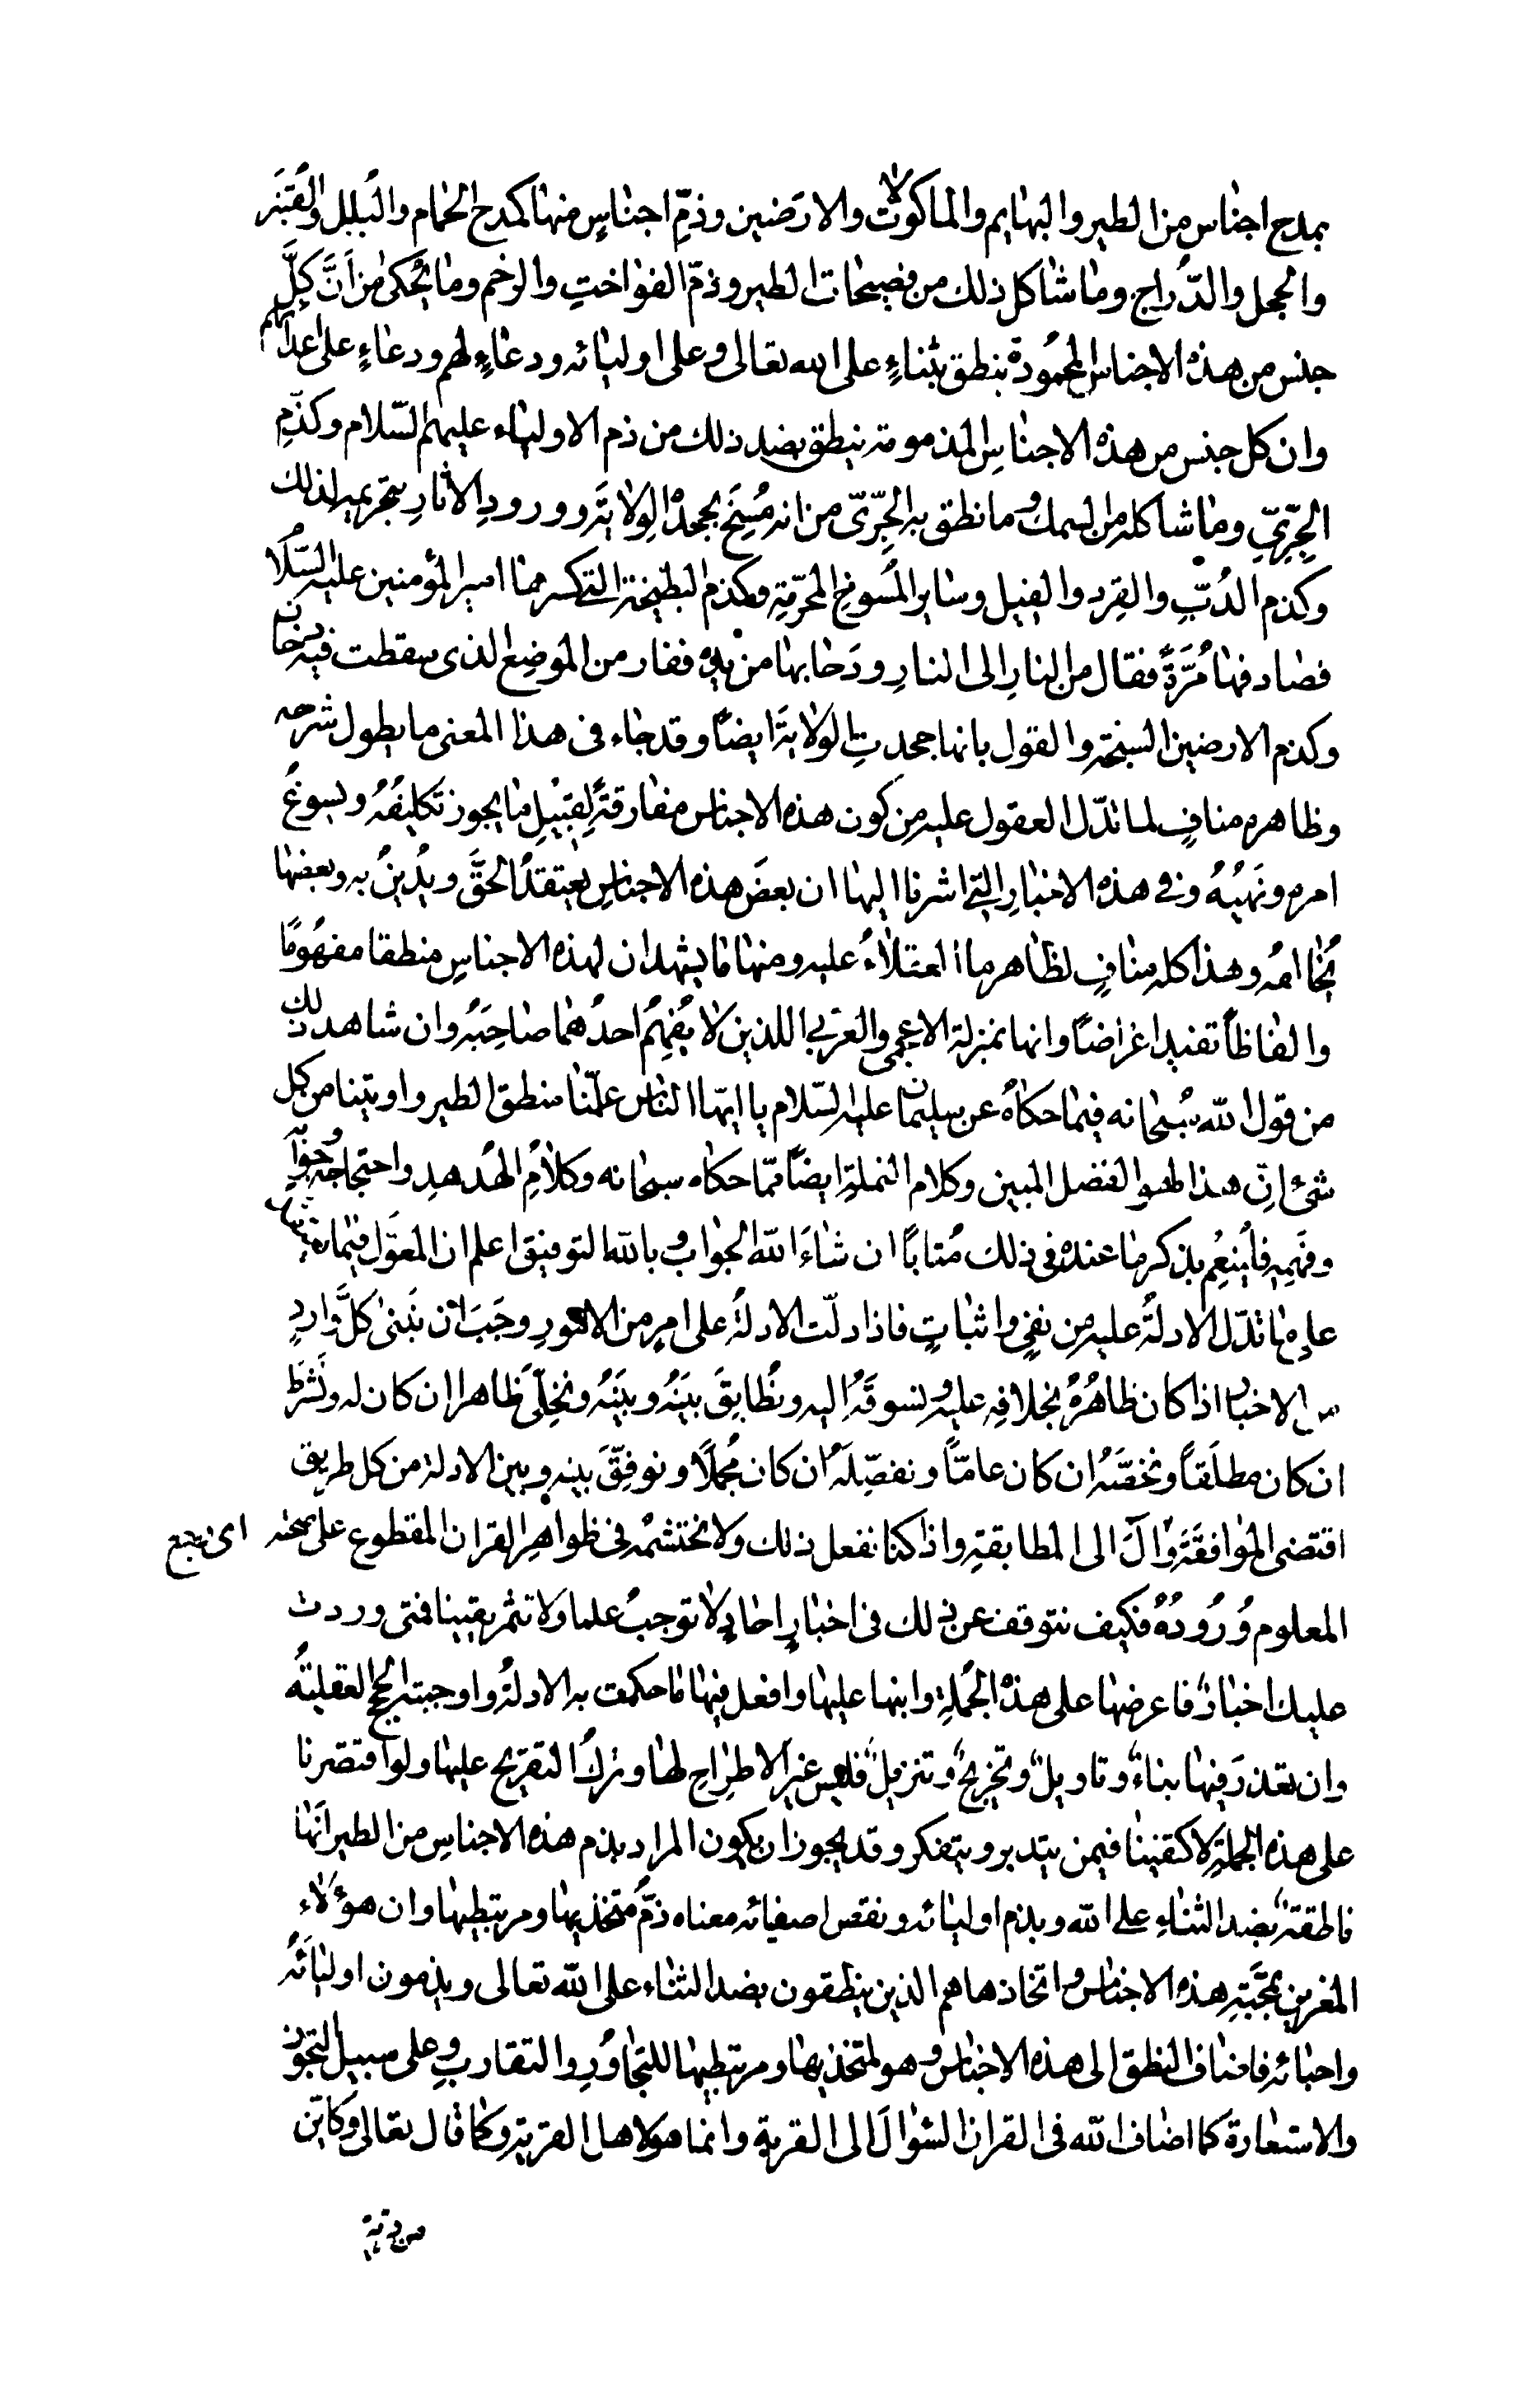 بمدح اجناس من الطير والبهايم والماكولات والارضين وذمّ اجناسٍ منها كمدح الحمام والبُلبل والقُنبَر
والحجل والدّراج وما شاكل ذلك من فصيحات الطير وذمّ الفواختِ والرخم وما يُحكى من اَنَّ كلَّ
جنس من هذه الاجناس المحمُودة ينطق بثناءٍ على الله تعالى وعلى اوليائه ودعاءٍ لهم ودعاءٍ على اعدائهم
وان كل جنس من هذه الاجناسِ المذمومة ينطق بضد ذلك من ذم الاولياء عليهم السّلام وكذمِّ
الجِرِّيّ وما شاكله من السمك وما نطق به الجِرِّىّ من انه مُسِخَ بجحدْه الولايَة وورودِ الاثارِ بتحريمه لذلك
وكذم الدُبّ والقِرد والفيل وساير المُسوخ المحرّمةِ وكذم البطيخة التى كسرها امير المؤمنين عليه السّلام
فصادفها مُرَّةً فقال من النارِ الى النارِ ودَحا بها من يدِه ففار من الموضع الذى سقطت فيه دخان
وكذم الارضين السبخة والقول بانها جحدتِ الولايَة ايضًا وقد جاء فى هذا المعنى ما يطول شرحه
وظاهره منافٍ لما تدّل العقول عليه من كون هذه الاجناس مفارقةً لقبيلِ ما يجوز تكليفُهُ ويسوغُ
امره ونَهيُهُ وفى هذه الاخبارِ التى اشرنا اليها ان بعضَ هذه الاجناسِ يعتقدُ الحقَّ ويُدينُ به وبعضها
يُخالفه وهذا كله منافٍ لظاهر ما العقلاءُ عليه ومنها ما يشهد ان لهذه الاجناسِ منطقا مفهُومًا
والفاظًا تفيد اغراضًا وانها بمنزلة الاعجمى والعربى اللذين لا يُفهِمُ احدُهما صاحِبَهُ وان شاهد ذلك
من قول الله سُبحانه فيما حكاهُ عن سليمان عليه السّلام يا ايّها الناس علّمنا منطق الطير واوتينا من كل
شئ اِنّ هذا لهو الفضل المبين وكلام النملةِ ايضًا ممّا حكاه سبحانه وكلامُ الهُدهدِ واحتجاجه وجوابه
وفهمِه فليُنعِم بذكر ما عنده فى ذلك مُثابًا ان شاءَ الله الجواب وبالله التوفيق اعلم ان المعوَّل فيما
عليه ما تدّل الادلةُ عليه من نفىٍ واثباتٍ فاذا دلّت الادلةُ على امرٍ من الامورِ وجَبَ ان نَبنى كلَّ واردٍ
من الاخبار اذا كان ظاهرُهُ بخلافِه عليه ونسوقَهُ اليه ونُطابِقَ بينَهُ وبينَهُ ونُخلّىَ ظاهرا ان كان له ونشرطَ
ان كان مطلَقاً ونخصَّهُ ان كان عامّاً ونفصِّلَهُ ان كان مُجملًا ونوفِّقَ بينه وبين الادلة من كل طريق
اقتضى الموافقَةَ وَآلَ الى المطابقةِ واذا كنا نفعل ذلك ولا نحتشمُه فى ظواهِر القران المقطوع على صحته
المعلوم وُرُودُهُ فكيف نتوقف عن ذلك فى اخبارٍ احادٍ لا توجبُ علما ولا تثمر يقينا فمتى وردت
عليك اخبارٌ فاعرضها على هذه الجُملةِ وابنها عليها وافعل فيها ما حكمت به الادلةُ واوجبته الحجج العقليةُ
وان تعذر فيها بناءٌ وتاويلٌ وتخريجٌ وتنزيلٌ فليس غير الاطِراحِ لها وتركُ التعريج عليها ولو اقتصرنا
على هذه الجملةِ لاكتفينا فيمن يتدبر ويتفكر وقد يجوز ان يكون المراد بذم هذه الاجناسِ من الطير اَنَّها
ناطقةٌ بضد الثناءِ على الله وبذم اوليائه ونقص اصفيائه معناه ذمُّ متخذيها ومرتبطيها وان هؤلاء
المغرين بمحَبّةِ هذه الاجناس واتخاذها هم الذين ينطقون بضد الثناء على الله تعالى ويذمون اوليائَهُ
واحبائه فاضاف النطق الى هذه الاجناس وهو لمتخذيها ومرتبطيها للتجاوُرِ والتقاربِ وعلى سبيل التجوز
والاستعارة كما اضاف الله فى القران السُّوالَ الى القرية وانما هو لاهل القريةِ وكما قال تعالى وكايّن
من قرية